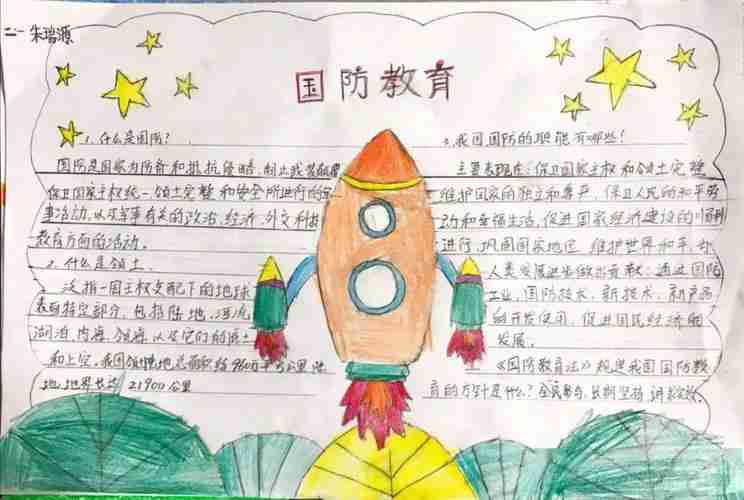 二一 朱瑞源
国防教育
1、什么是国防?
国防是国家为防备和抵抗侵略,制止武装颠覆
保卫国家主权统一领土完整和安全所进行的
事活动,以及与军有关的政治、经济、外交科技
教育方面的活动。
2、什么是领土、
泛指一国主权支配下的地球
表面特定部分,包括陆地、河流
湖泊、内海、领海、以及它们的底土
和上空。我国领陆地总面积约960万平方公里
地边界长达 21900公里
3、我国国防的职能有哪些!
主要表现在:保卫国家主权和领土完整
维护国家的独立和尊严,保卫人民的和平劳
动和幸福生活,促进国家经济建设的顺利
进行,巩固国家地位,维护世界和平,为
人类发展进步做出贡献;通过国防
工业,国防技术,新技术,新产品
的开发使用,促进国民经济的
发展。
《国防教育法》规定我国国防教
育的方针是什么?全民参与,长期坚持,讲求实效。